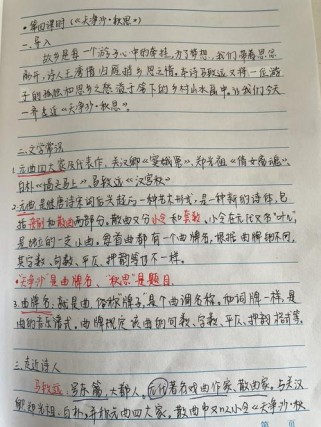 ·第四课时(《天净沙·秋思》)
一.导入
故乡是每一个游子心中的牵挂,为了梦想,我们带着思念
离开,诗人王湾借归雁
子的
一齐走进《天净沙·秋思》。
二.文学常识
1.元曲四大家及代表作:关汉卿《窦娥冤》、郑光祖《倩女离魂》、
白朴《墙头马上》、马致远《汉宫秋》
2.元曲是继唐诗宋词后兴起的一种艺术形式,是一种新的诗体,包
括杂剧和散曲两部分。散曲又分小令和套数,小令在元代又名"叶儿",
是独立的一支小曲,每首曲都有一个曲牌名,根据曲牌的不同,
其字数、句数、平仄、押韵等也不一样。
·"天净沙"是曲牌名,"秋思"是题目
3.曲牌名,就是曲俗称"牌子",是个曲调名称。和词牌一样,是
曲的音乐谱式。曲牌规定该曲的句数、字数、平仄、押韵格式等。
三.走近诗人
马致远,字东篱,大都人,元代著名戏曲作家、散曲家。与关汉
卿、郑光祖、白朴,并称元曲四大家。散曲中又以小令《天净沙·秋
第 页